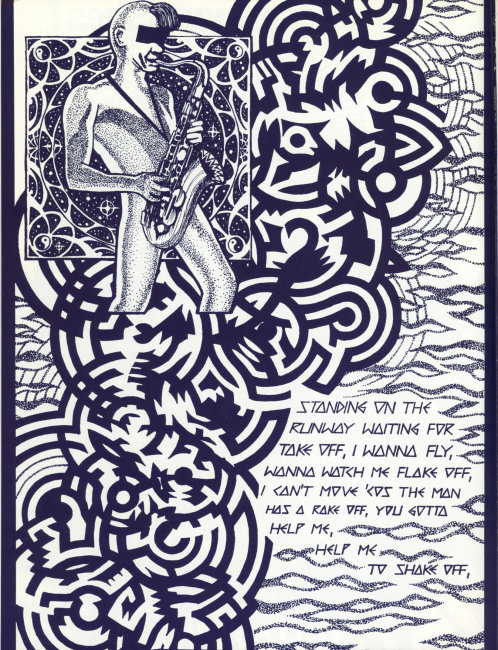 STANDING ON THE
RUNWAY WAITING FOR
TAKE OFF, I WANNA FLY,
WANNA WATCH ME FLAKE OFF,
I CAN'T MOVE 'COS THE MAN
HAS A RAKE OFF, YOU GOTTA
HELP ME,
HELP ME
TO SHAKE OFF,